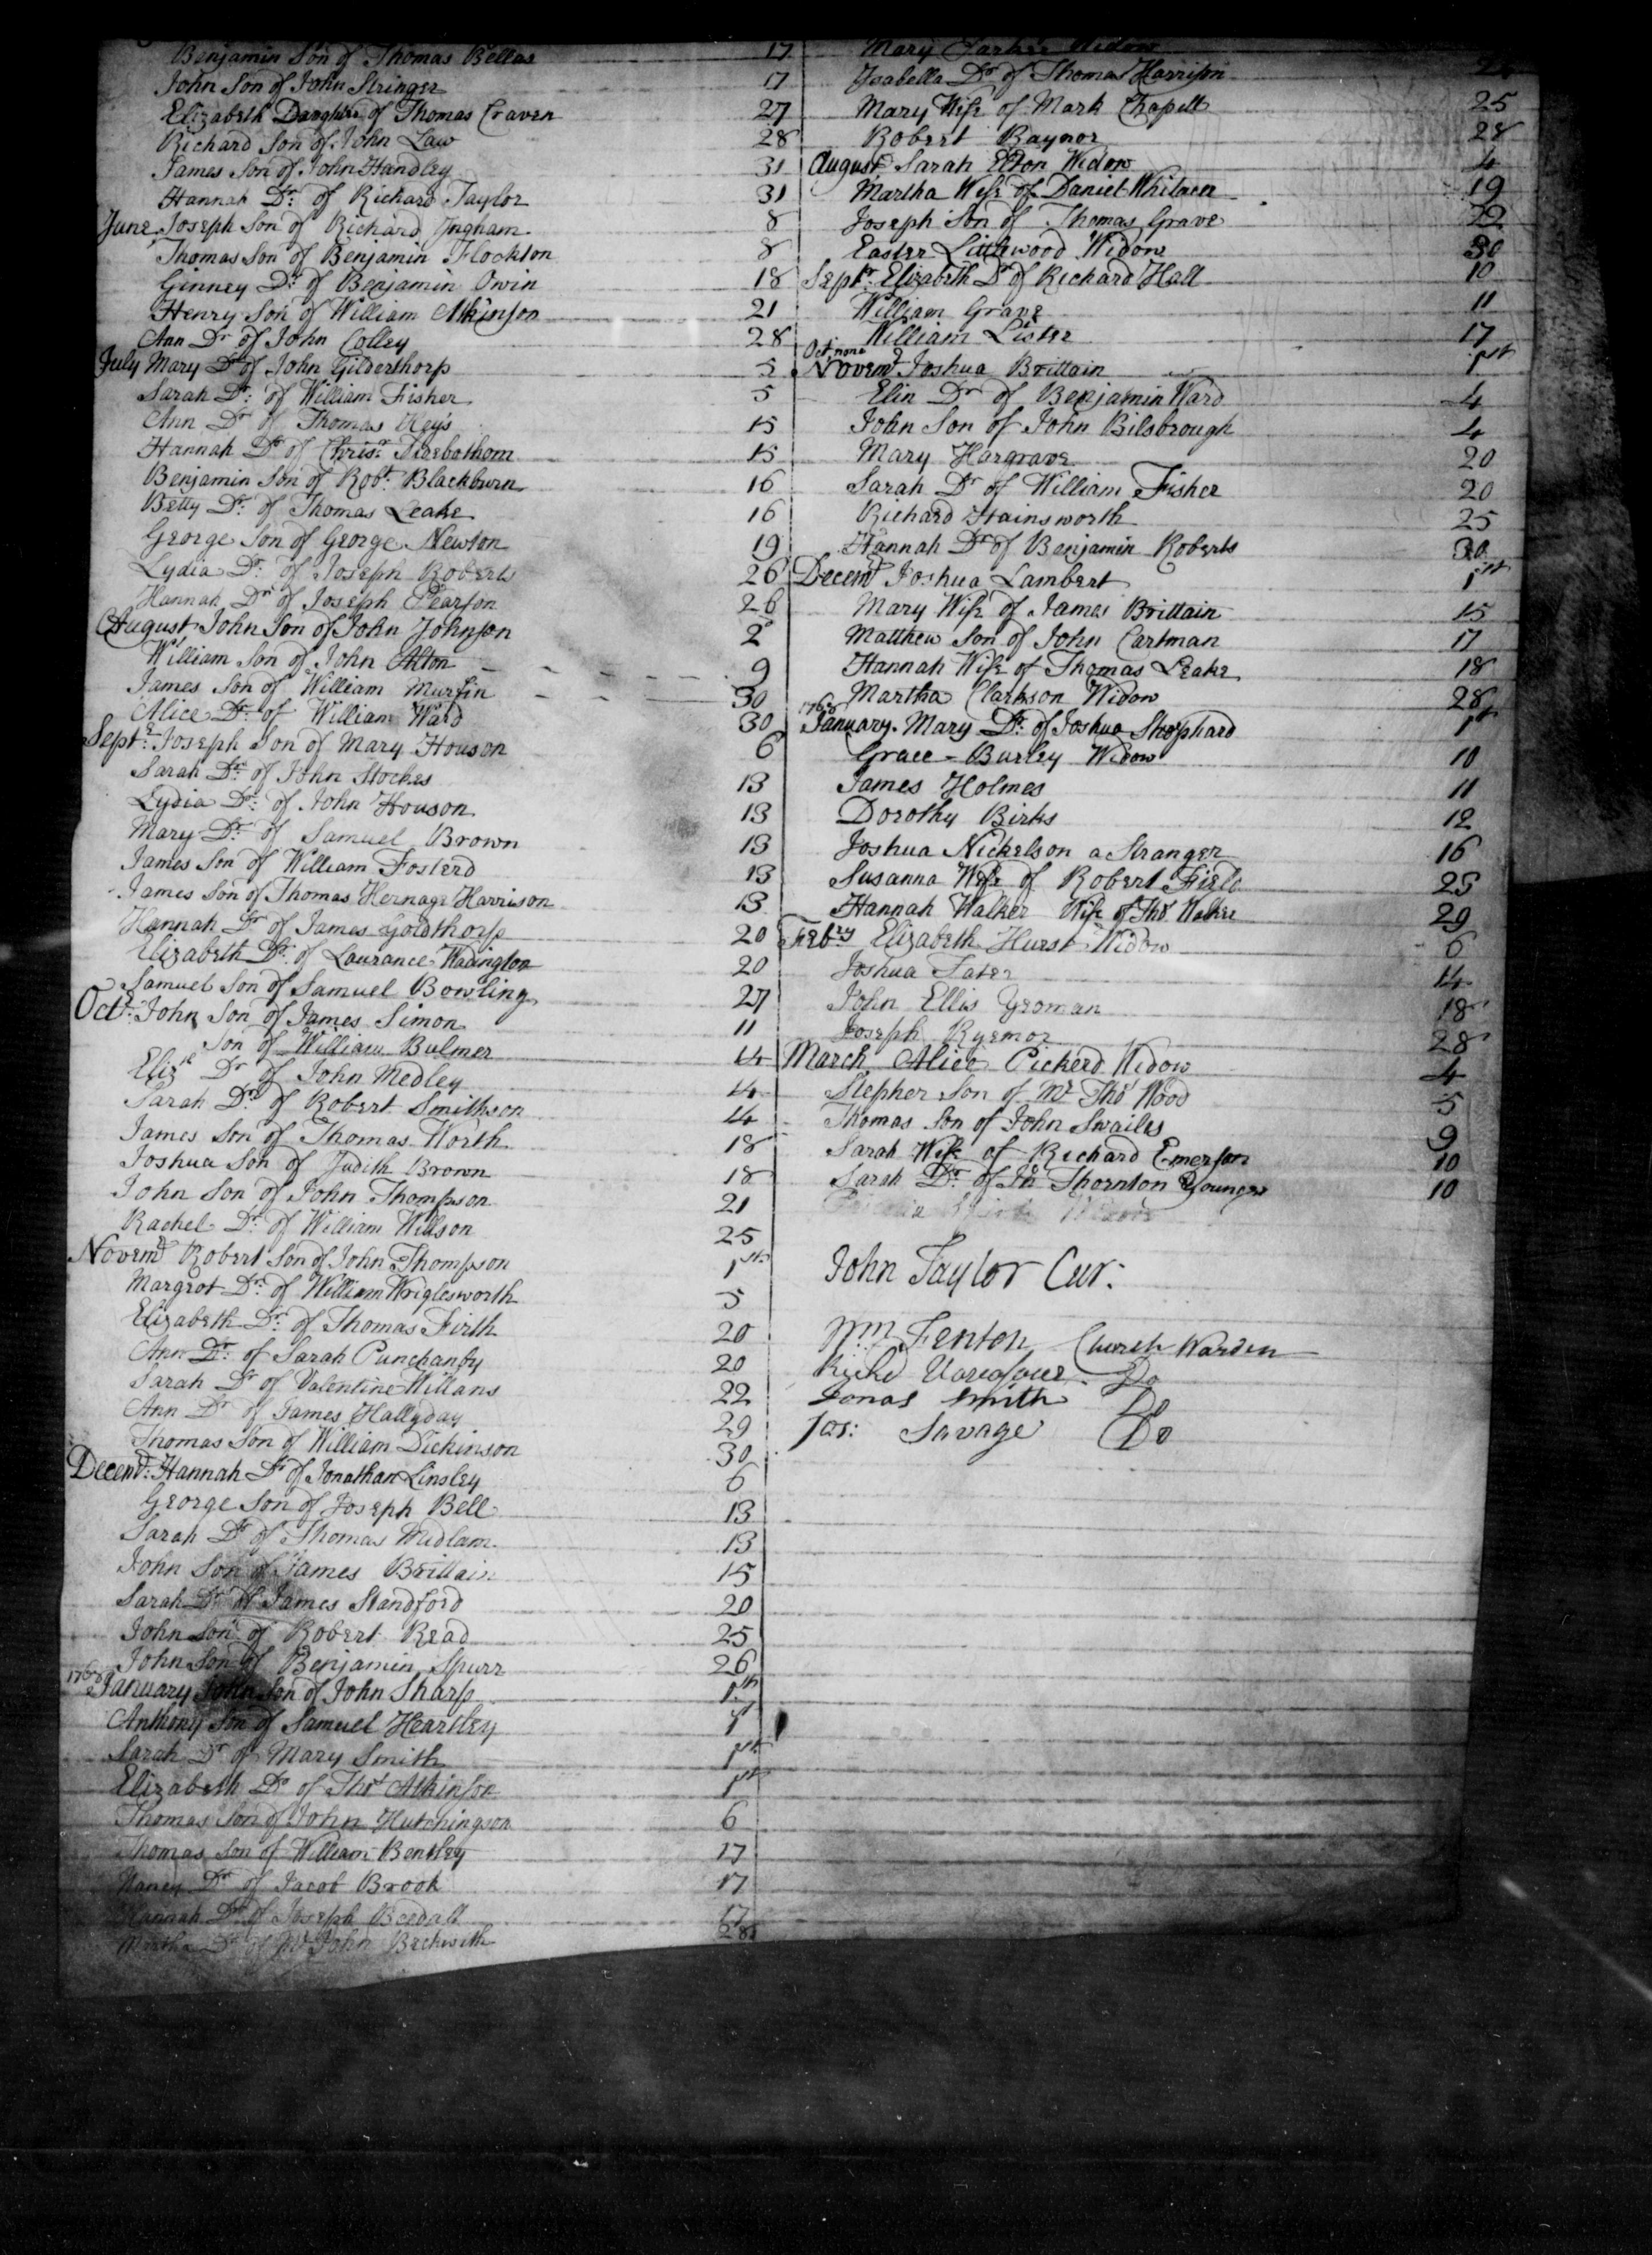 Benjamin Son of Thomas Bellas 17
John Son of John Stringer 17
Elizabeth Daughter of Thomas Craven 27
Richard Son of John Law 28
James Son of John Handley 31
Hannah Dr: of Richard Taylor 31
June Joseph Son of Richard Jngham 8
Thomas Son of Benjamin Flockton 8
Ginney Dr: of Benjamin Owin 18
Henry Son of William Atkinson 21
Ann Dr of John Colley 28
July Mary Dr of John Gilderthorp 5
Sarah Dr: of William Fisher 5
Ann Dr of Thomas Keys 15
Hannah Dr of Chrisr: 15
Benjamin Son of Robt: Blackburn 16
Betty Dr: of Thomas Leake 16
George Son of George Newton 19
Lydia Dr: of Joseph Roberts 26
Hannah Dr of Joseph Pearson 26
August John Son of John Johnson 2
William Son of John Alton 9
James Son of William Murfin 30
Alice Dr: of William Ward 30
Septr: Joseph Son of Mary Houson 6
Sarah Dr: of John Stockes 13
Lydia Dr: of John Houson 13
Mary Dr: of Samuel Brown 13
James Son of William Fosterd 13
James Son of Thomas Hernage Harrison 13
Hannah Dr of James Goldthorp 20
Elizabeth Dr: of Laurance Wadington 20
Samuel Son of Samuel Bowling 27
Octr: John Son of James Simon 11
Son of William Bulmer 14
Elizth Dr of John Medley 14
Sarah Dr of Robert Smithson 14
James Son of Thomas North 18
Joshua Son of Judith Brown 18
John Son of John Thompson 21
Rachel Dr: of William Willson 25
Novemr Robert Son of John Thompson 1st
Margrot Dr: of William Wriglesworth 5
Elizabeth Dr: of Thomas Firth 20
Ann Dr: of Sarah Punchanby 20
Sarah Dr of Valentine Willans 22
Ann Dr of James Hallyday 29
Thomas Son of William Dickinson 30
Decemr: Hannah Dr of Jonathan Linsley 6
George Son of Joseph Bell 13
Sarah Dr of Thomas Midlam 13
John Son of James Brittain 15
Sarah Dr of James Standford 20
John Son of Robert Read 25
John Son of Benjamin Spurr 26
January John Son of John Sharp 1st
Anthony Son of Samuel Heartley 1
Sarah Dr of Mary Smith 1st
Elizabeth Dr of Thos Atkinson 1st
Thomas Son of John Hutchingson 6
Thomas Son of William Bentley 17
Nancy Dr of Jacob Brook 17
Hannah Dr of Joseph 17
Martha Dr of Mr John Beckwith 28
Mary Widow
Jsabella Dr of Thomas Harrison
Mary Wife of Mark Chapell 25
Robert Raynor 28
August Sarah Elton Widow 4
Martha Wife of Daniel 19
Joseph Son of Thomas Grave 22
Easter Littlewood Widow 30
Septr: Elizabeth Dr of Richard Hall 10
William Grave 11
William Lister 17
Octr none
Novemr Joshua Brittain 1st
Elin Dr of Benjamin Ward 4
John Son of John Bilsbrough 4
Mary Hargrave 20
Sarah Dr of William Fisher 20
Richard Hainsworth 25
Hannah Dr of Benjamin Roberts 30
Decemr Joshua Lambert 1st
Mary Wife of James Brittain 15
Matthew Son of John Cartman 17
Hannah Wife of Thomas Leake 18
Martha Clarkson Widow 28
1768
January Mary Dr: of Joshua Shephard 1st
Grace Burley Widow 10
James Holmes 11
Dorothy Birks 12
Joshua Nickelson a Stranger 16
Susanna Wife of Robert Field 25
Hannah Walker Wife of Thos Walker 29
Febry Elizabeth Hurst Widow 6
Joshua 14
John Ellis Yeoman 18
Joseph Ryemor 28
March Alice Pickerd Widow 4
Stephen Son of Mr Thos Wood 5
Thomas Son of John Swailes 9
Sarah Wife of Richard Emerson 10
Sarah Dr: of Jn Thornton Younger 10
John Taylor Cur:
Wm Fenton Church Warden
Richd Do
Jonas Smith Do
Jos: Savage Do